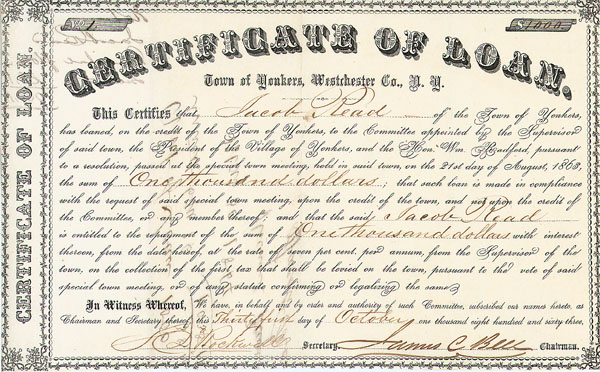 No 1
$1000
CERTIFICATE OF LOAN.
CERTIFICATE OF LOAN.
Town of Yonkers, Westchester Co., N. Y.
This Certifies that Jacob Read of the Town of Yonkers,
has loaned, on the credit of the Town of Yonkers, to the Committee appointed by the Supervisor
of said town, the President of the Village of Yonkers, and the Hon. Wm. Radford, pursuant
to a resolution, passed at the special town meeting, held in said town, on the 21st day of August, 1863,
the sum of One thousand dollars; that such loan is made in compliance
with the request of said special town meeting, upon the credit of the town and not upon the credit of
the Committee, or any member thereof; and that the said Jacob Read
is entitled to the repayment of the sum of One thousand dollars with interest
thereon, from the date hereof, at the rate of seven per cent. per annum, from the Supervisor of the
town, on the collection of the first tax that shall be levied on the town, pursuant to the vote of said
special town meeting, or of any statute confirming or legalizing the same.
In Witness Whereof, We have, in behalf and by order and authority of such Committee, subscribed our names hereto, as
Chairman and Secretary thereof, this Thirty first day of October, one thousand eight hundred and sixty three.
Rockwell Secretary. James C. Bell Chairman.